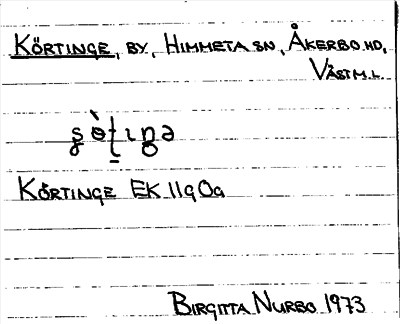 KÖRTINGE, BY, HIMMETA SN, ÅKERBO HD,
VÄSTM.L.
KÖRTINGE EK 11g0a
BIRGITTA NURBO 1973